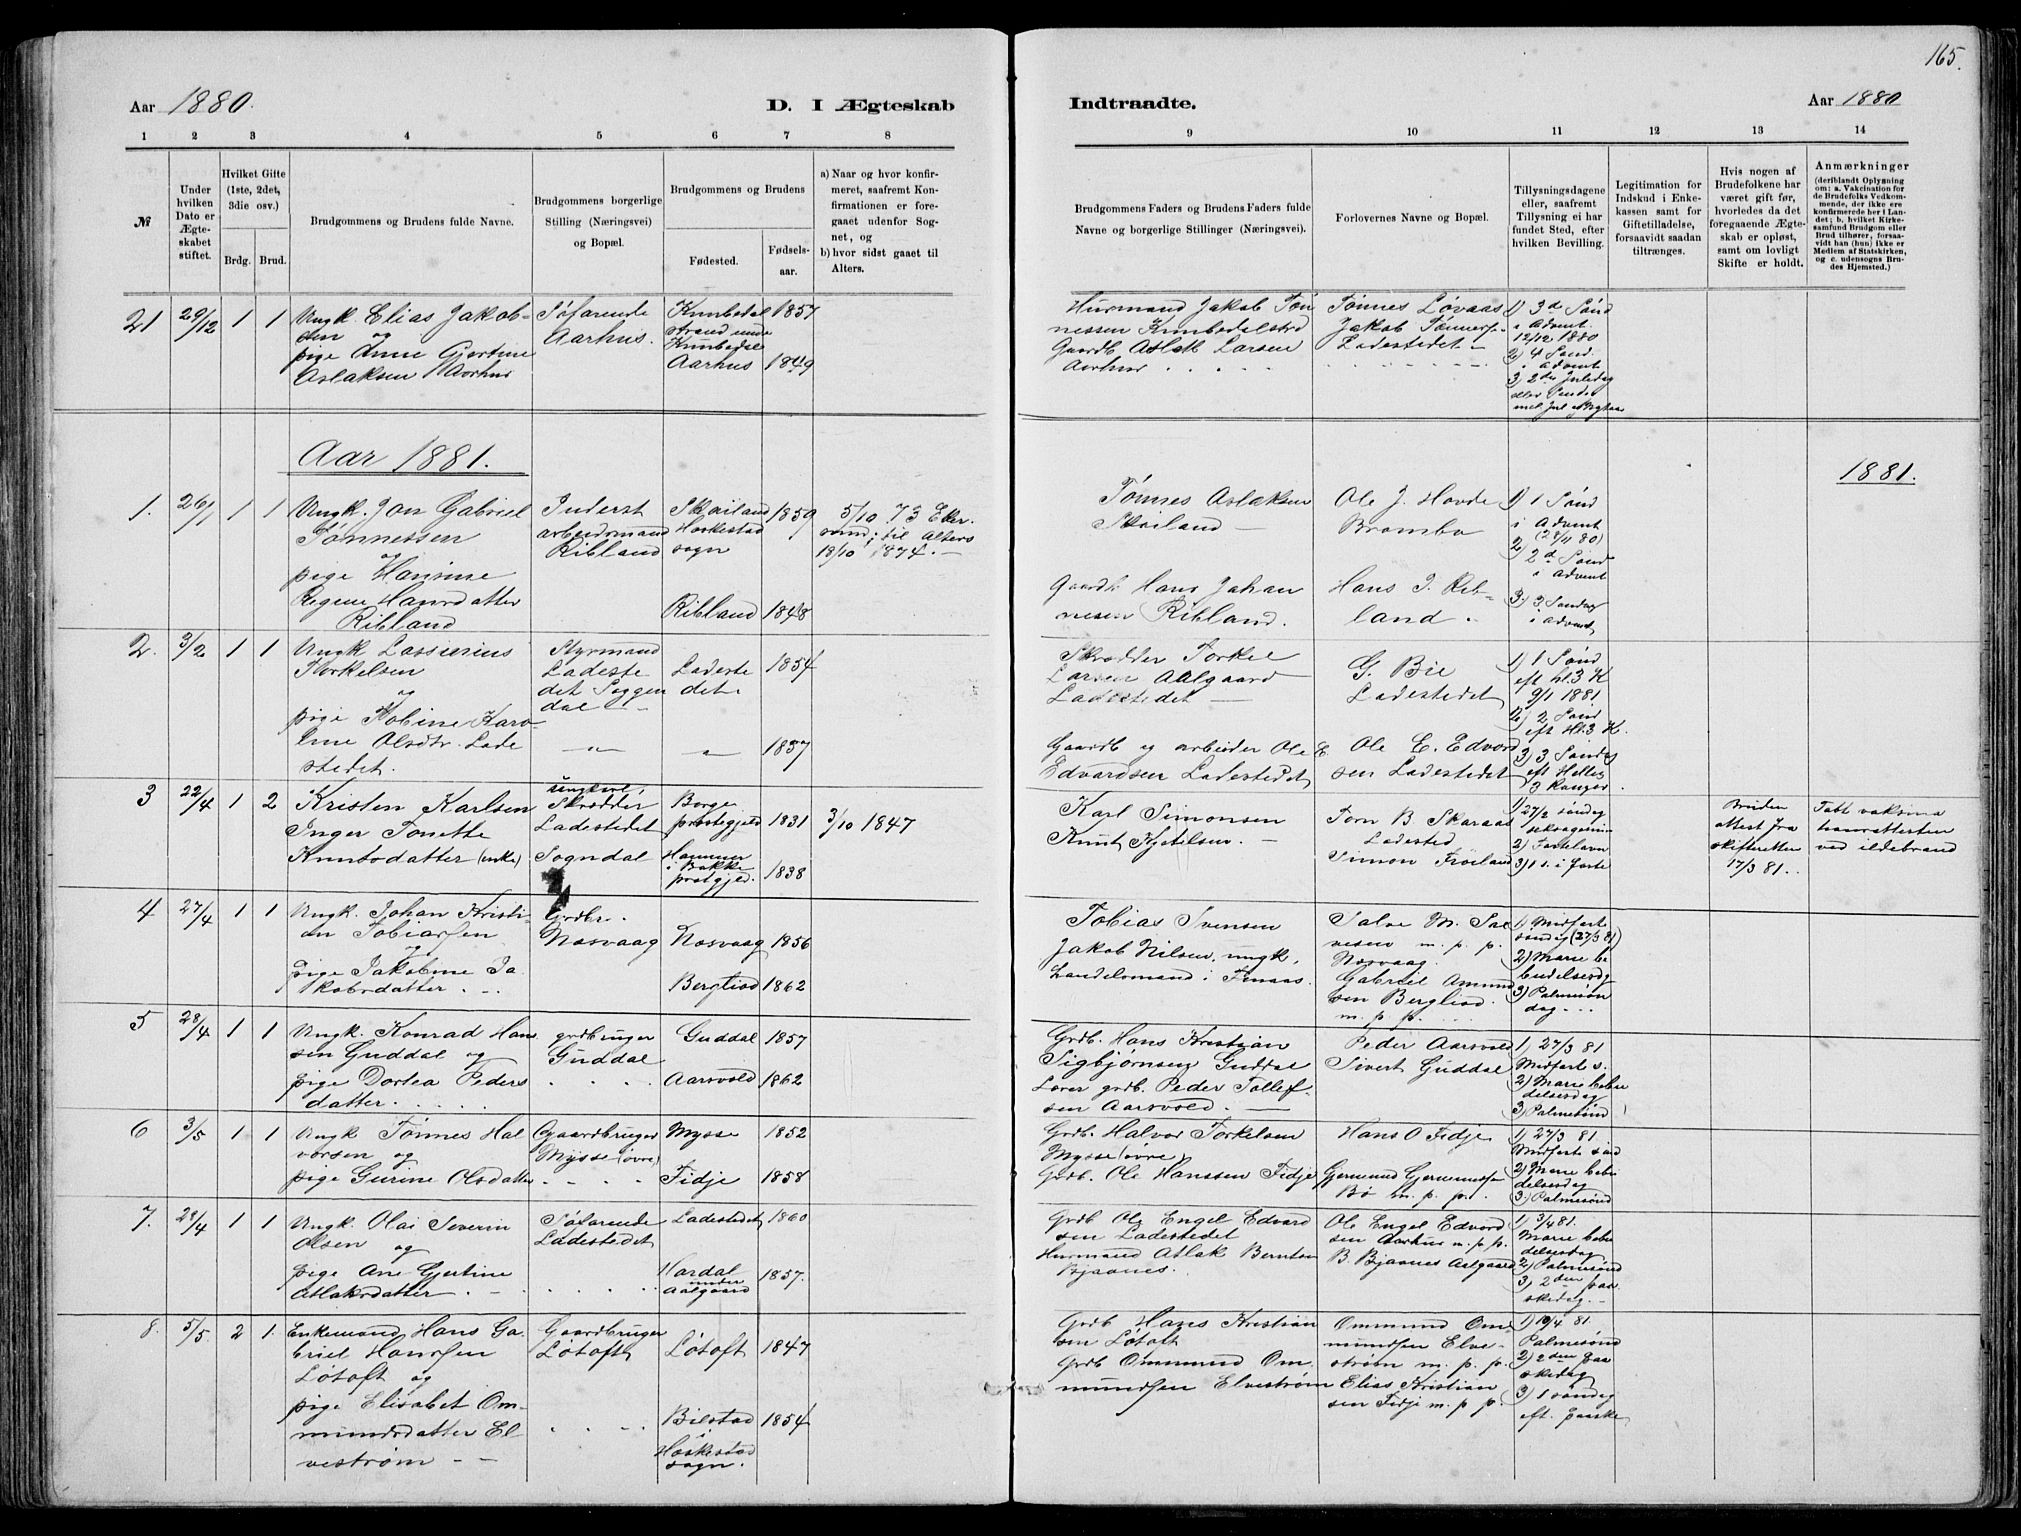 165.
Aar 1880.
D. I Ægteskab
Indtraadte.
Aar 1880
1 2 3 4 5 6 7 8
9 10 11 12 13 14
№
Under hvilken Dato er Ægteskabet stiftet.
Hvilket Gifte (1ste, 2det, 3die osv.)
Brdg. Brud.
Brudgommens og Brudens fulde Navne.
Brudgommens borgerlige Stilling (Næringsvei) og Bopæl.
Brudgommens og Brudens
Fødested.
Fødselsaar.
a) Naar og hvor konfirmeret, saafremt Konfirmationen er foregaaet udenfor Sognet, og
b) hvor sidst gaaet til Alters.
Brudgommens Faders og Brudens Faders fulde Navne og borgerlige Stillinger (Næringsvei).
Forlovernes Navne og Bopæl.
Tillysningsdagene eller, saafremt Tillysning ei har fundet Sted, efter hvilken Bevilling.
Legitimation for Indskud i Enkekassen samt for Giftetilladelse, forsaavidt saadan tiltrænges.
Hvis nogen af Brudefolkene har været gift før, hvorledes da det foregaaende Ægteskab er opløst, samt om lovligt Skifte er holdt.
Anmærkninger
(deriblandt Oplysning om: a. Vakcination for de Brudefolks Vedkommende, der ikke ere konfirmerede her i Landet; b, hvilket Kirkesamfund Brudgom eller Brud tilhører, forsaavidt han (hun) ikke er Medlem af Statskirken, og c. udensogns Brudes Hjemsted.)
21 29/12 1 1
Ungk. Elias Jakobsen og
pige Anne Gjertine
Aslaksen Aarhus
Søfarende
Aarhus.
Knubedal
strand unde
Knubedal
1857
Aarhus 1849
Husmand Jakob Tønnessen Knubedalstrd
Gaardb Aslak Larsen
Aarhus
Tønnes Løvaas
Jakob Tønness.
Ladestedet
1) 3de Sønd
i Advent
12/12 1880
2) 4 Sønd.
i Advent
3) 2den Juledag
Aar 1881.
1881.
1. 26/1 1 1
Ungk. Jon Gabriel
Tønnessen
og
pige Hansine
Regine Hansdatter
Ribland
Inderst
arbeidsmand
Ribland
Skailand
Heskestad
sogn
1859
Ribland 1848
5/10 73 Ekersund; til Alters
19/10 1874.
Tønnes Aslaksen
Skailand
Gaardb. Hans Johannesen Ribland.
Ole J. Hovde
Brambo
Hans J. Ribland.
1) 1 Sønd
i Advent
(28/11 80)
2) 2d Sønd
i Advent
3) 3 Søndag
i Advent
2. 3/2 1 1
Ungk Lassierius
Torkelsen
og
pige Tobine Karoline Olsdtr. Ladestedet.
Styrmand
Ladestedet Soggendal
Ladestedet.
1854
1837
Skrædder Torkel
Larsen Aalgaard
Ladestedet
Gaardb og arbeider Ole E
Edvardsen Ladestedet
G. Bie
Ladestedet
Ole E. Edvardsen Ladestedet
1) 1 Sønd
eft hl. 3 K
9/1 1881
2) 2 Sønd
eft Hl. 3 K.
3) 3 Søndag
eft Hellig
3 Konger
3 22/4 1 2
Kristen Karlsen
Inger Tonette
Knutsdatter (enke)
ungkarl,
Skrædder
Ladestedet
Sogndal
Borge
prestegjeld
1831
i Bakke
prestgjeld.
1838
3/10 1847
Karl Simonsen
Knut Kjetelsen.
Torn B Skaraas
Ladested
Simon Frøiland
1) 27/2 søndag
2) Fastelavn
3) 1 s. i faste
Bruden
attest fra
skifteretten
17/3 81.
Tabt vaksina
ved ildebrand
4 27/4 1 1
Ungk. Johan Kristian Tobiassen
og
pige Jakobine Jakobsdatter.
Grdbr.
Nesvaag
Nesvaag 1856
Bergliod 1862
Tobias Svensen
Jakob Nilsen, ungk.
Handelsmand i Finaas.
Salve M. Salvesen m. p. p.
Nesvaag.
Gabriel Amundsen Bergliod.
m. p. p.
1) Midfaste
søndag (27/3 81)
2) Marie bebudelsesdg
3) Palmesøndag
5 28/4 1 1
Ungk. Konrad Hansen Guddal og
pige Dortea Pedersdatter.
grdbruger
Guddal
Guddal 1857
Aarsvold 1862
Grdb. Hans Kristian
Sigbjørnsen Guddal
Lærer grdb. Peder Tollefsen Aarsvold.
Peder Aarsvold
Sivert Guddal
1) 27/3 81
Midfast s.
2) Marie bebudelsesdag
3) Palmesønd
6 3/5 1 1
Ungk Tønnes Halvorsen og
pige Gurine Olsdatter
Gaardbruger
Mysse (øvre)
Mysse 1852
Fidje 1858
Grdb. Halvor Torkelsen
Mysse (øvre)
Grdb. Ole Hanssen Fidje
Hans O Fidje
Gjermund Gjermundsen
Bø m. p. p.
1) 27/3 81.
Midfaste sønd
2) Marie bebudelsesdag
3) Palmesønd
7. 28/4 1 1
Ungk. Olai Severin
Olsen og
pige Ane Gjertine
Aslaksdatter.
Søfarende
Ladestedet
Ladestedet 1860
Hardal
under
Aalgaard
1857.
Grdb Ole Engel Edvardsen Ladestedet
Husmand Aslak Berntsen
Bjaanes.
Ole Engel Edvardsen Aarhus m. p. p.
B. Bjaanes Aalgaard
1) 3/4 81.
Marie bebudelsesdag
2) Palmesønd
3) 2den paaskedag.
8. 5/5 2 1.
Enkemand Hans Gabriel Hanssen
Løtoft og
pige Elisabet Ommundsdatter Elvestrøm
Gaardbruger
Løtoft
Løtoft 1847
Bilstad
i
Heskestad
sogn.
1854
Grdb Hans Kristiansen Løtoft
Grdb Ommund Ommundsen Elvestrøm
Ommund Ommundsen Elvestrøm m. p. p.
Elias Kristiansen Fidje m. p. p.
1) 10/4 81.
Palmesønd
2) 2den paaskedag
3) 1 søndag
eft. paaske